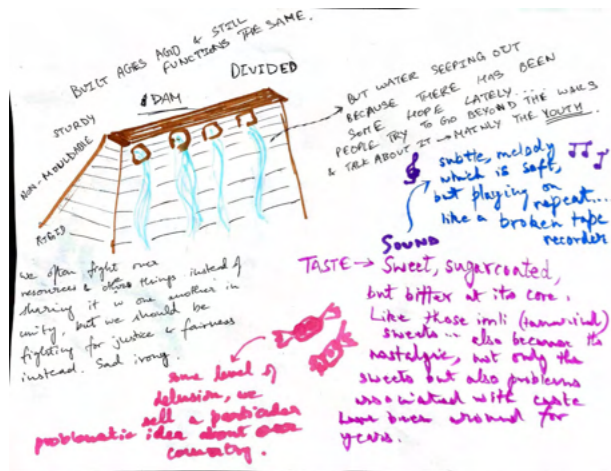 BUILT AGES AGO & STILL
FUNCTIONS THE SAME.
DAM
DIVIDED
STURDY
NON-MOULDABLE
RIGID
BUT WATER SEEPING OUT
BECAUSE THERE HAS BEEN
SOME HOPE LATELY....
PEOPLE TRY TO GO BEYOND THE WALLS
& TALK ABOUT IT → MAINLY THE YOUTH.
subtle, melody
which is soft,
but playing on
repeat...
like a broken tape
recorder
SOUND
we often fight over
resources & other things instead of
sharing it w one another in
unity, but we should be
fighting for justice & fairness
instead. Sad irony.
TASTE → Sweet, sugarcoated,
but bitter at its core.
Like those imli (tamarind)
sweets... also because the
nostalgic, not only the
sweets but also problems
associated with caste
have been around for
years.
some level of
delusion, we
sell a particular
problematic idea about our
country.